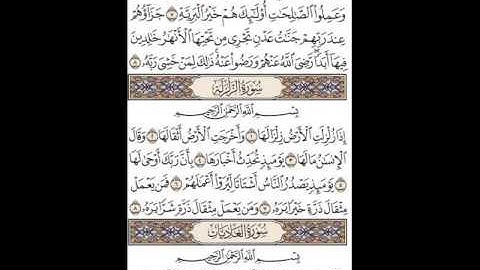 وَعَمِلُوا۟ ٱلصَّـٰلِحَـٰتِ أُو۟لَـٰٓئِكَ هُمْ خَيْرُ ٱلْبَرِيَّةِ ٧ جَزَآؤُهُمْ
عِندَ رَبِّهِمْ جَنَّـٰتُ عَدْنٍ تَجْرِى مِن تَحْتِهَا ٱلْأَنْهَـٰرُ خَـٰلِدِينَ
فِيهَآ أَبَدًا ۖ رَّضِىَ ٱللَّهُ عَنْهُمْ وَرَضُوا۟ عَنْهُ ۚ ذَٰلِكَ لِمَنْ خَشِىَ رَبَّهُۥ ٨
سُورَةُ الزَّلْزَلَةِ
بِسْمِ ٱللَّهِ ٱلرَّحْمَـٰنِ ٱلرَّحِيمِ
إِذَا زُلْزِلَتِ ٱلْأَرْضُ زِلْزَالَهَا ١ وَأَخْرَجَتِ ٱلْأَرْضُ أَثْقَالَهَا ٢ وَقَالَ
ٱلْإِنسَـٰنُ مَا لَهَا ٣ يَوْمَئِذٍ تُحَدِّثُ أَخْبَارَهَا ٤ بِأَنَّ رَبَّكَ أَوْحَىٰ لَهَا
٥ يَوْمَئِذٍ يَصْدُرُ ٱلنَّاسُ أَشْتَاتًا لِّيُرَوْا۟ أَعْمَـٰلَهُمْ ٦ فَمَن يَعْمَلْ
مِثْقَالَ ذَرَّةٍ خَيْرًا يَرَهُۥ ٧ وَمَن يَعْمَلْ مِثْقَالَ ذَرَّةٍ شَرًّا يَرَهُۥ ٨
سُورَةُ العَادِيَاتِ
بِسْمِ ٱللَّهِ ٱلرَّحْمَـٰنِ ٱلرَّحِيمِ